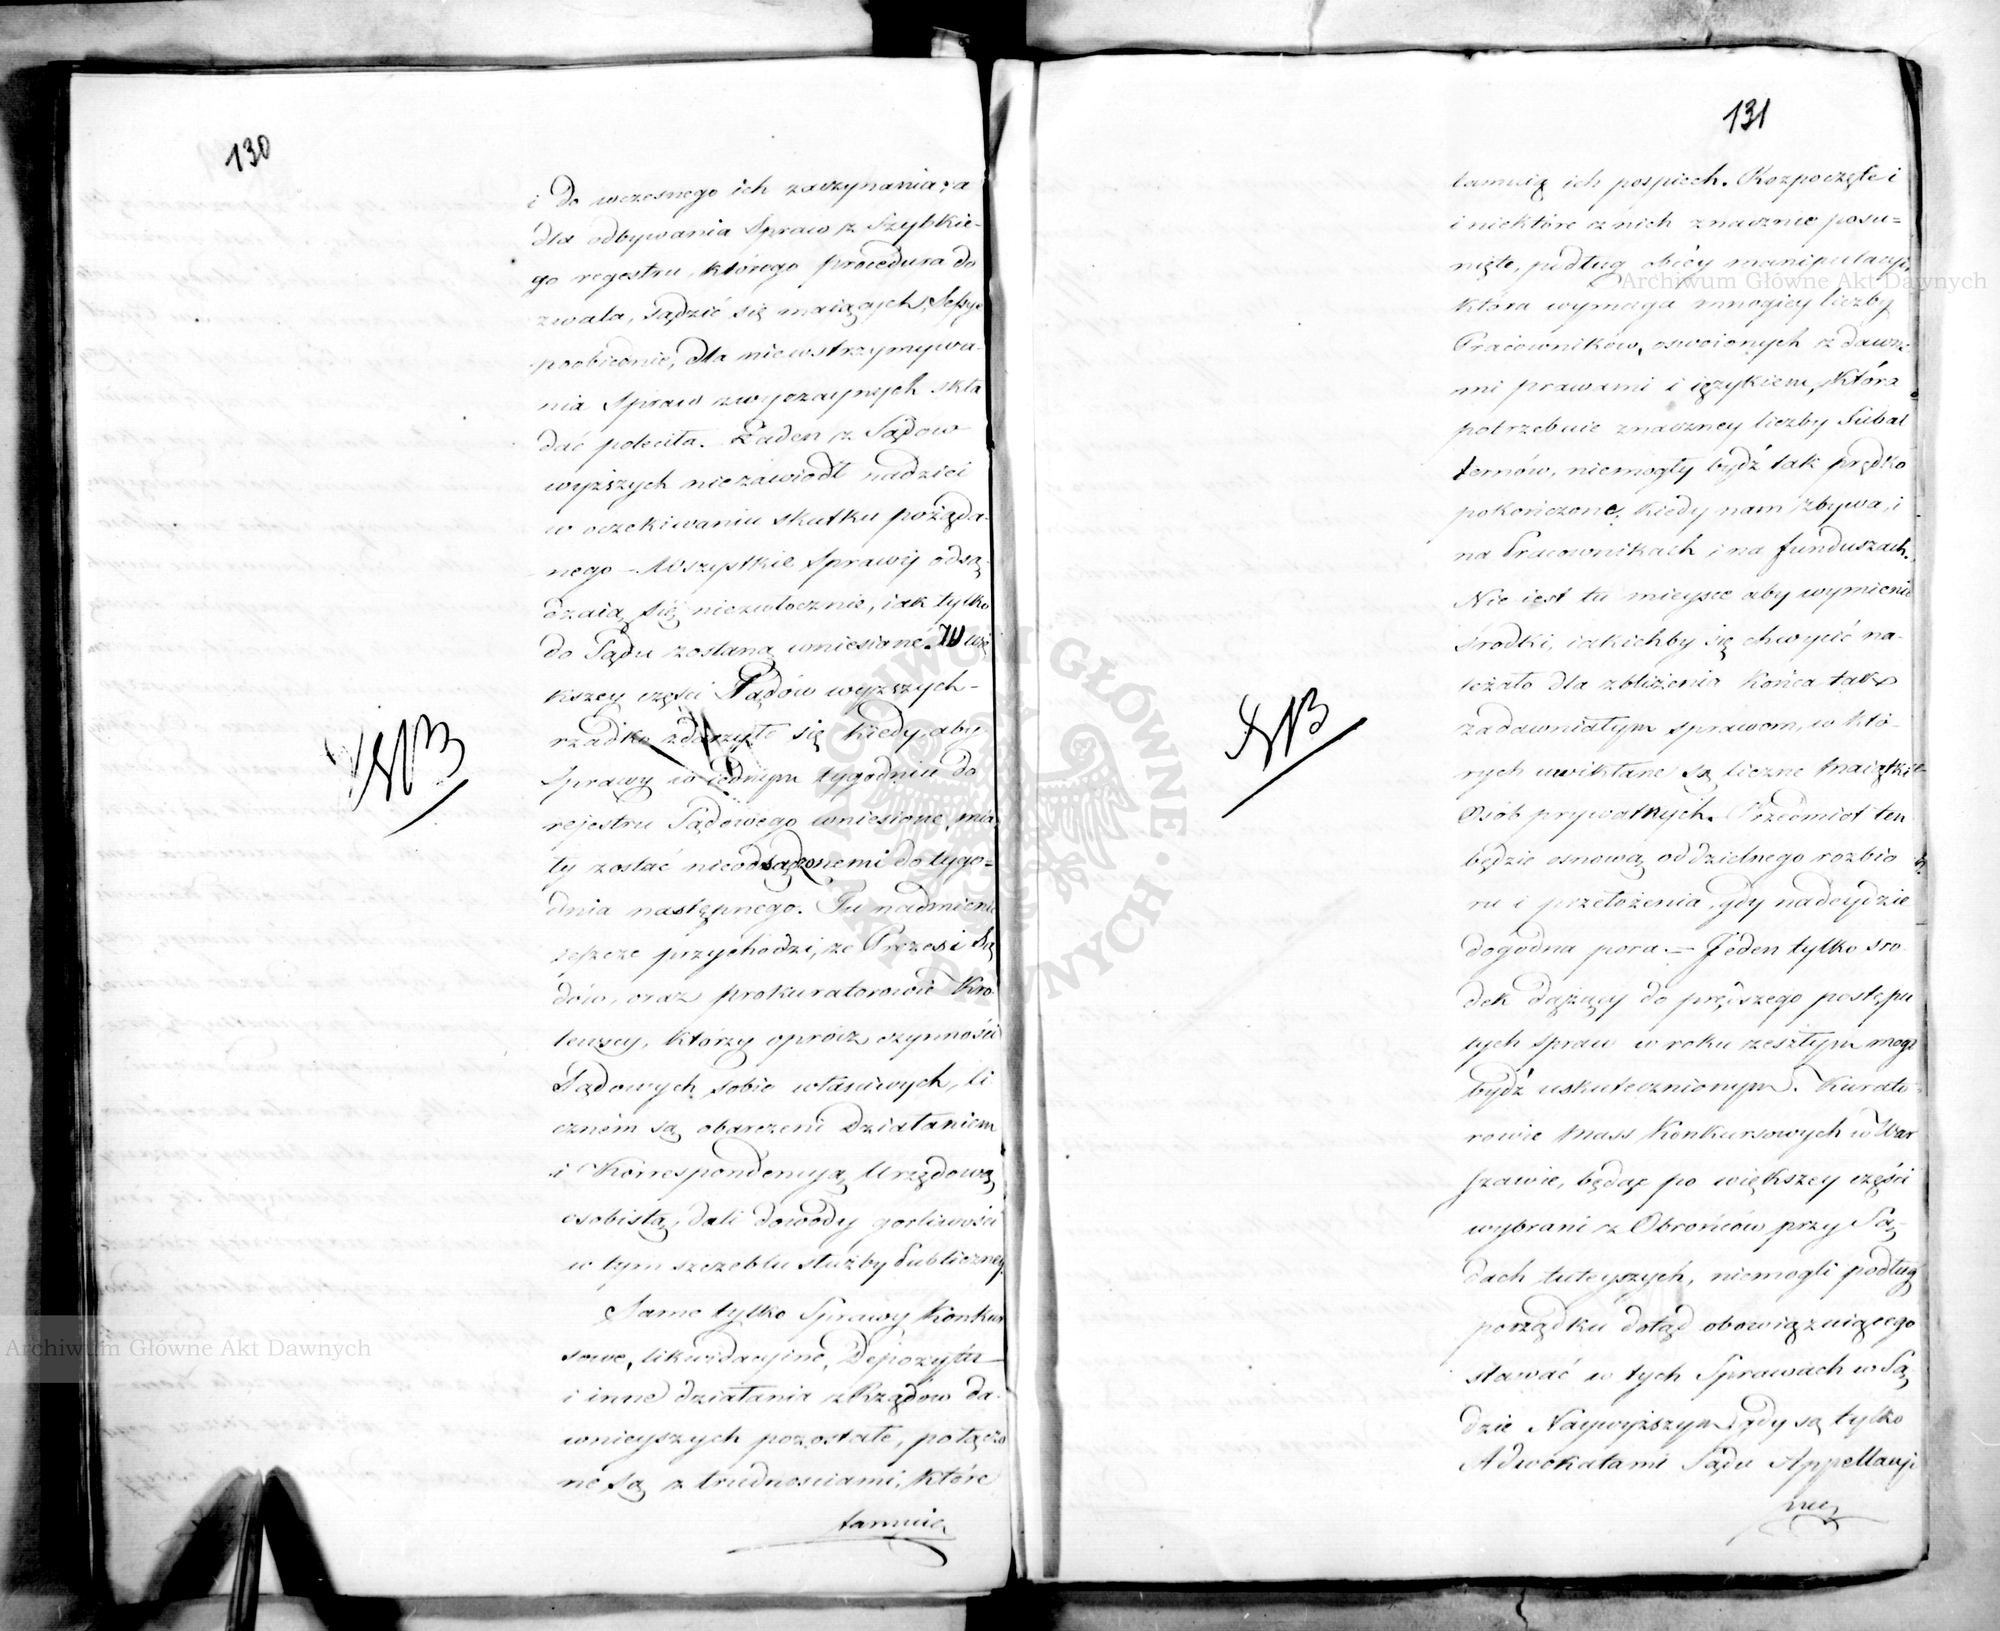 130
i do wczesnego ich zaczynania, a
dla odbywania Spraw z Szybkie-
go regestru, którego procedura do
zwala, sądzić się maiących, Sessye
poobiednie, dla niewstrzymywa-
nia Spraw zwyczaynych skła
dać poleciła. Żaden z Sądow
wyższych niezawiódł nadziei
w oczekiwaniu skutku pożąda-
nego – Wszystkie Sprawy odsą-
dzaią się niezwłocznie, iak tylko
do Sądu zostaną wniesione. W wię
kszey części Sądów wyższych –
rzadko zdarzyło się kiedy, aby
Sprawy w iednym tygodniu do
rejestru Sądowego wniesione, mia
ły zostać nieodsądzonemi do tygo-
dnia następnego. Tu nadmienić
ieszcze przychodzi, że Prezesi Są
dów, oraz prokuratorowie Kró
lewscy, którzy oprócz czynności
Sądowych sobie właściwych, li
cznem są obarczeni działaniem
i Korrespondencyą Urzędową
osobistą, dali dowody gorliwości
w tym szczeblu służby Publiczney.
Same tylko Sprawy Konkur
sowe, likwidacyjne, Depozytu –
i inne działania z Rządów da-
wnieyszych pozostałe, połączo
ne są z trudnościami, które
tamuią
NB
131
tamuią ich pospiech. Rozpoczęte i
i niektóre z nich znacznie posu-
nięte, podług obcéy manipulacyi,
która wymaga mnogiey liczby
Pracowników, oswoionych z dawne
mi prawami i ięzykiem, która
potrzebuie znaczney liczby Subal
ternów, niemogły bydź tak prędko
pokończone, kiedy nam zbywa, i
na Pracownikach i na funduszach.
Nie iest tu mieysce aby wymienić
środki, iakichby się chwycić na-
leżało dla zbliżenia końca tak
zadawniałym sprawom, w któ-
rych uwikłane są liczne maiątki
Osób prywatnych. Przedmiot ten
będzie osnową oddzielnego rozbio
ru i przełożenia, gdy nadeydzie
dogodna pora. – Jeden tylko śro-
dek dążący do prętszego postępu
tych spraw w roku zeszłym mógł
bydź uskutecznionym. Kurato-
rowie Mass Konkursowych w War
szawie, będąc po większey części
wybrani z Obrońców przy Są-
dach tuteyszych, niemogli podług
porządku dotąd obowiązuiącego
stawać w tych Sprawach w Są-
dzie Naywyższym, gdy są tylko
Adwokatami Sądu Appellacyi
NB
Archiwum Główne Akt Dawnych
Archiwum Główne Akt Dawnych